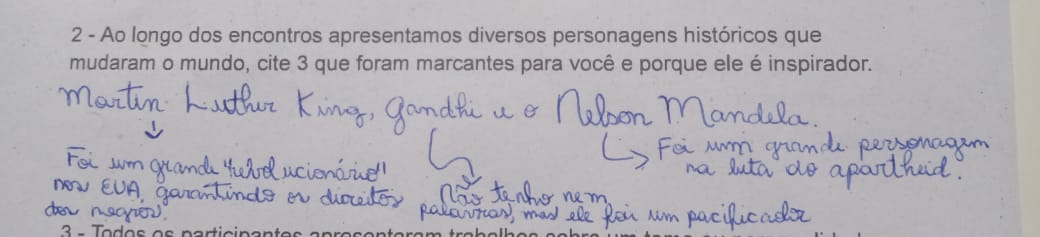 2 - Ao longo dos encontros apresentamos diversos personagens históricos que
mudaram o mundo, cite 3 que foram marcantes para você e porque ele é inspirador.
Martin Luther King, Gandhi e o Nelson Mandela.
Foi um grande "revolucionário"
nos EUA, garantindo os direitos
dos negros.
Não tenho nem
palavras, mas ele foi um pacificador
Foi um grande personagem
na luta do apartheid.
3 - Todos os participantes apresentaram trabalhos sobre um tema